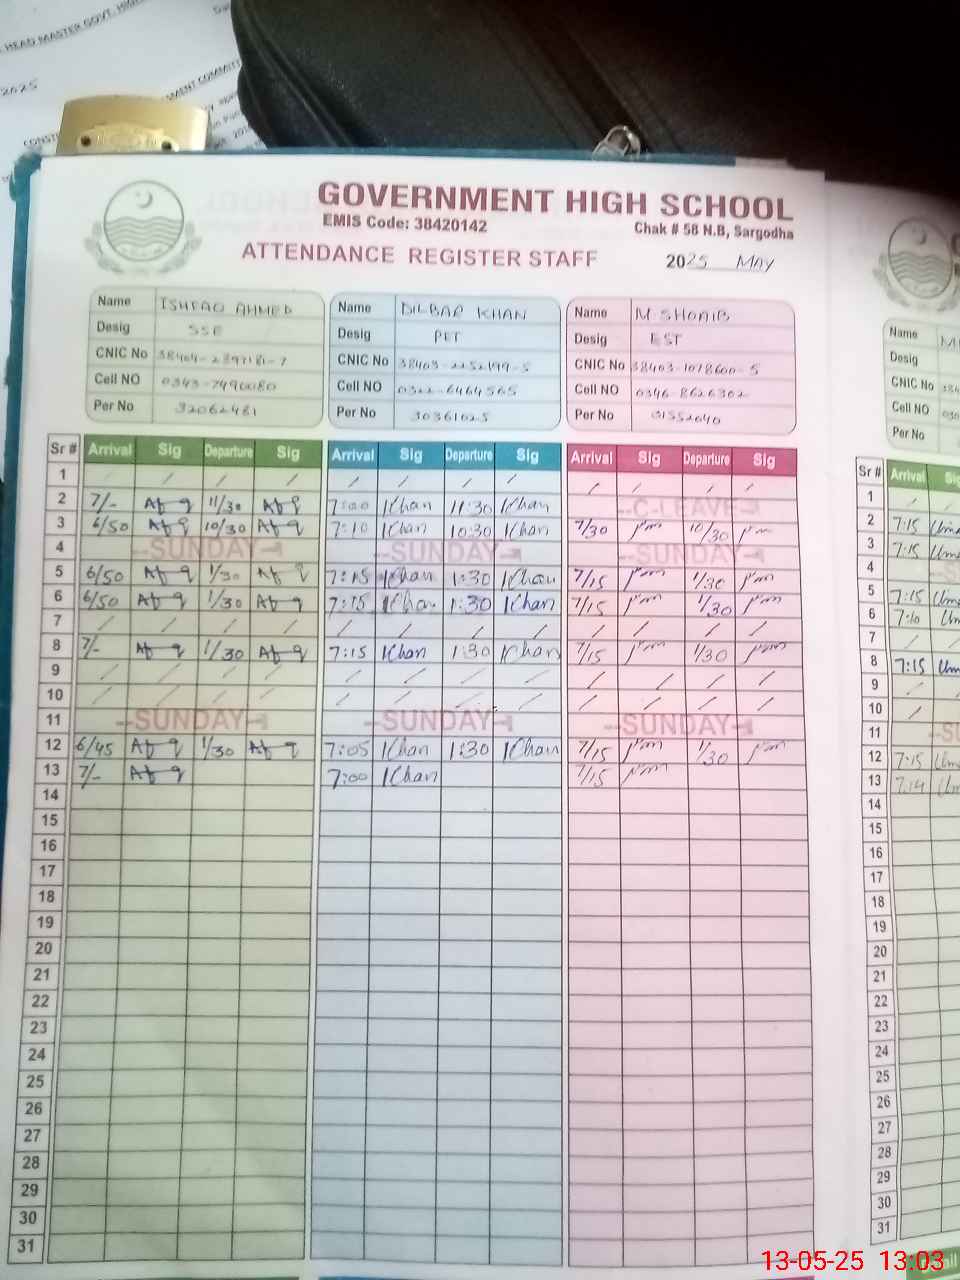 HEAD MASTER GOVT. HIGH
2025
GOVERNMENT HIGH SCHOOL
EMIS Code: 38420142
Chak # 58 N.B, Sargodha
ATTENDANCE REGISTER STAFF
2025 MAY
Name ISHFAQ AHMED Name DILBAR KHAN Name M SHOAIB Name
Desig SSE Desig PET Desig EST Desig
CNIC No CNIC No 38403-2252199-5 CNIC No 38403-1078600-5 CNIC No
Cell NO 0343-7490080 Cell NO 0322-6464565 Cell NO 0346 8626302 Cell NO
Per No 32062481 Per No 30361025 Per No 31552040 Per No
Sr # Arrival Sig Departure Sig Arrival Sig Departure Sig Arrival Sig Departure Sig Sr # Arrival
1 / / / / / / / / / / / / 1 /
2 7/- 11/30 7:00 Khan 11:30 Khan C-LEAVE 2 7:15
3 6/50 10/30 7:10 Khan 10:30 Khan 7/30 10/30 3 7:15
4 SUNDAY SUNDAY SUNDAY 4
5 6/50 1/30 7:15 Khan 1:30 Khan 7/15 1/30 5 7:15
6 6/50 1/30 7:15 Khan 1:30 Khan 7/15 1/30 6 7:10
7 / / / / / / / / / / / / 7 /
8 7/- 1/30 7:15 Khan 1:30 Khan 7/15 1/30 8 7:15
9 / / / / / / / / / / / / 9 /
10 / / / / / / / / / / / / 10 /
11 SUNDAY SUNDAY SUNDAY 11
12 6/45 1/30 7:05 Khan 1:30 Khan 7/15 1/30 12 7:15
13 7/- 7:00 Khan 7/15 13 7:14
14 14
15 15
16 16
17 17
18 18
19 19
20 20
21 21
22 22
23 23
24 24
25 25
26 26
27 27
28 28
29 29
30 30
31 31
13-05-25 13:03